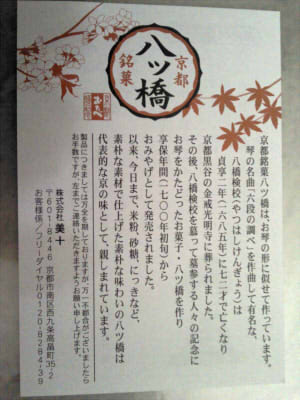 京都
八ツ橋
銘菓
京都銘菓八ツ橋は、お琴の形に似せて作っています。
琴の名曲「六段の調べ」を作曲して有名な、
八橋検校(やつはしけんぎょう)は
貞享二年(一六八五年)に七二才で亡くなり
京都黒谷の金戒光明寺に葬られました。
その後、八橋検校を慕って墓参する人々の記念に
お琴をかたどったお菓子・八ツ橋を作り
享保年間(一七〇〇年初旬)から
おみやげとして発売されました。
以来、今日まで、米粉、砂糖、にっきなど、
素朴な素材で仕上げた素朴な味わいの八ツ橋は
代表的な京の味として、親しまれています。
製品につきましては万全を期しておりますが、万一不都合がございましたら
お手数ですが、左までご連絡いただきますようお願い申し上げます。
株式会社 美十
〒601-8446 京都市南区西九条高畠町35-2
お客様係/フリーダイヤル0120-8284-39